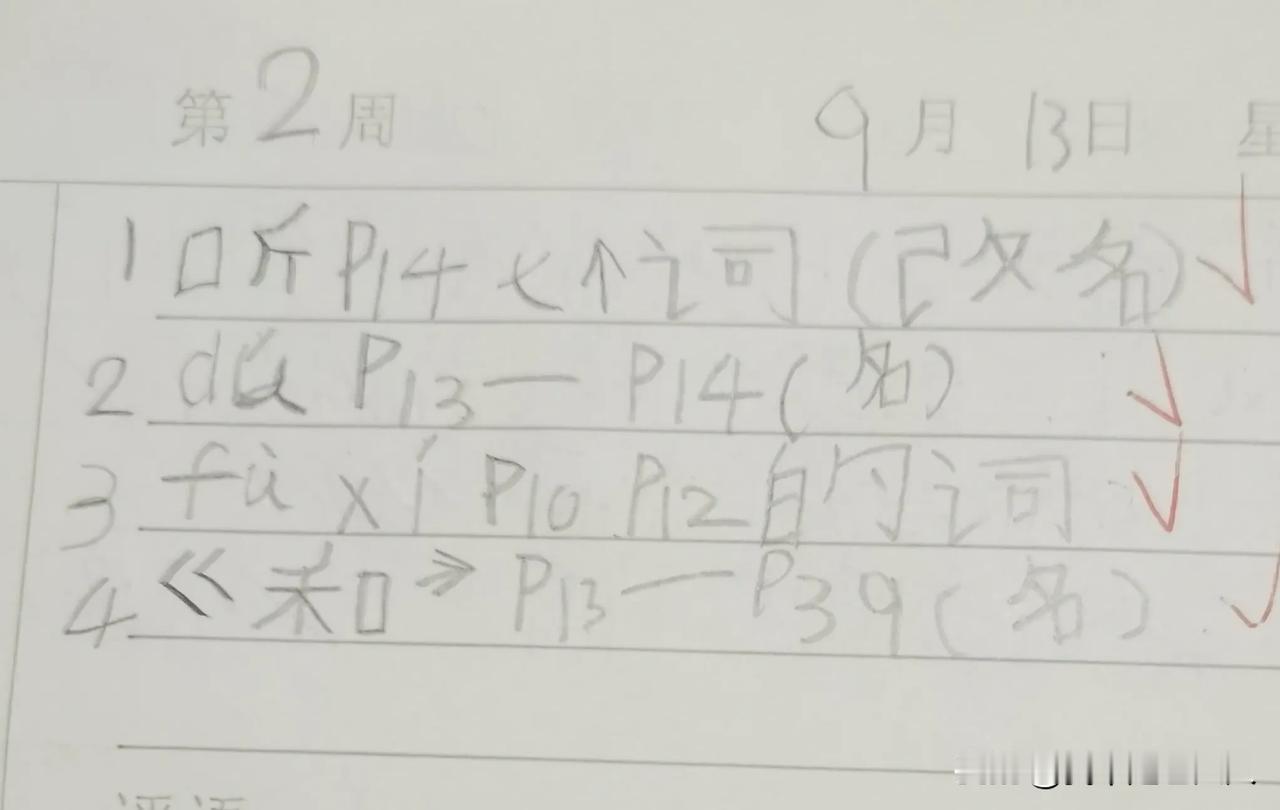 第2周 9月13日 星
1 听P14七个词(改名)
2 dú P13—P14(名)
3 fù xí P10 P12的词
4 《和》P13—P39(名)
评语